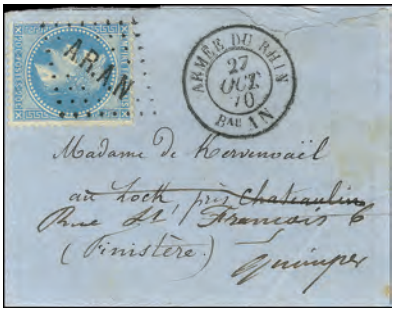 A.R.AN
ARMÉE DU RHIN
27
OCT.
70
Bau AN
Madame de Kervenoaël
au Loch, près Chateaulin
Rue St François 6
(Finistère)
Quimper